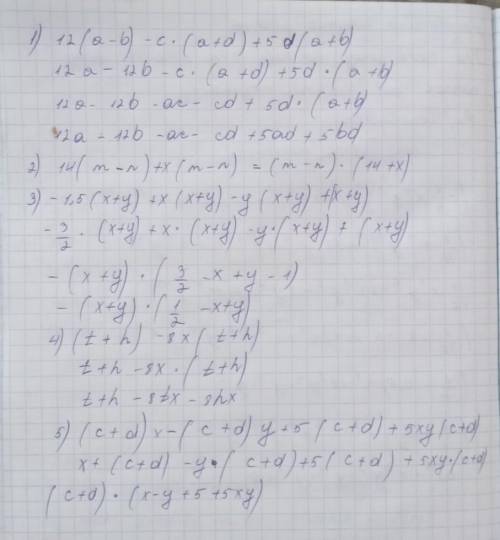 1) 12(a-b) -c·(a+d)+5d(a+b)
12a-12b-c·(a+d)+5d·(a+b)
12a-12b-ac-cd+5d·(a+b)
12a-12b-ac-cd+5ad+5bd
2) 14(m-n)+x(m-n)=(m-n)·(14+x)
3) -1,5(x+y)+x(x+y)-y(x+y)+(x+y)
-3/2·(x+y)+x·(x+y)-y·(x+y)+(x+y)
-(x+y)·(3/2-x+y-1)
-(x+y)·(1/2-x+y)
4) (t+h)-8x(t+h)
t+h-8x·(t+h)
t+h-8tx-8hx
5) (c+d)x-(c+d)y+5(c+d)+5xy(c+d)
x+(c+d)-y·(c+d)+5(c+d)+5xy·(c+d)
(c+d)·(x-y+5+5xy)